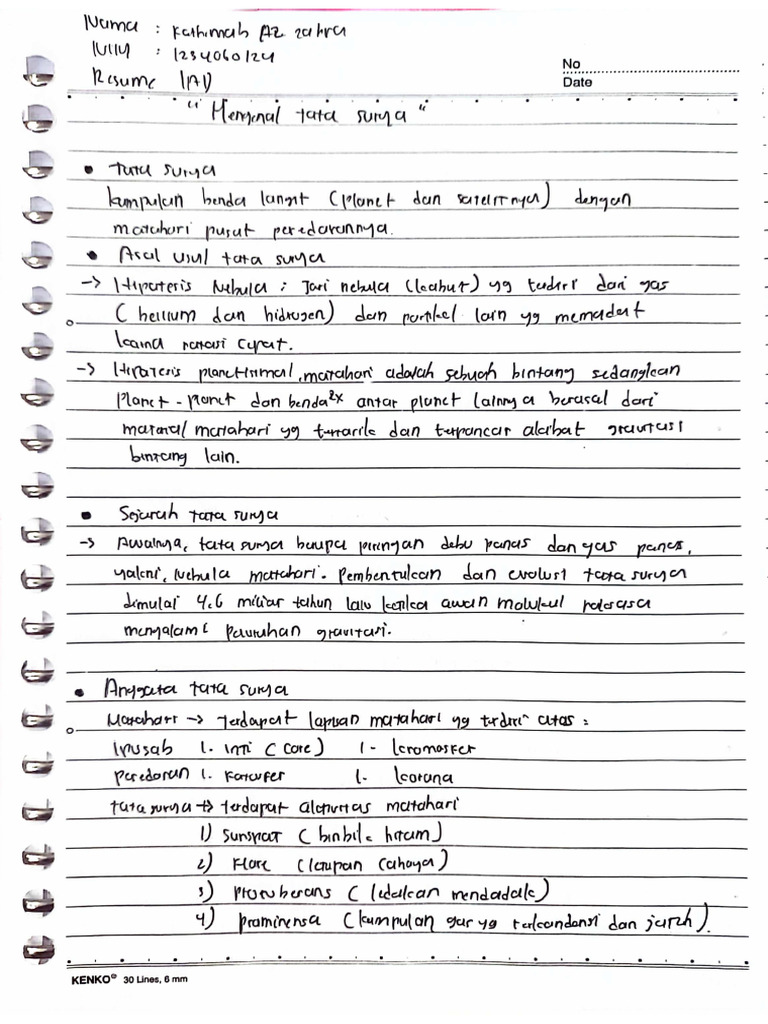 Nama : Fathimah Az zahra
NIM : 1234060124
Resume IAD
No
Date
" Mengenal tata surya "
• Tata surya
kumpulan benda langit (planet dan satelitnya) dengan
matahari pusat peredarannya.
• Asal usul tata surya
-> Hipotesis Nebula : Dari nebula (kabut) yg terdiri dari gas
( helium dan hidrogen) dan partikel lain yg memadat
karna rotasi cepat.
-> Hipotesis planetisimal, matahari adalah sebuah bintang sedangkan
planet - planet dan benda2x antar planet lainnya berasal dari
material matahari yg tertarik dan terpancar akibat gravitasi
bintang lain.
• Sejarah tata surya
-> Awalnya, tata surya berupa piringan debu panas dan gas panas,
yakni, Nebula matahari. Pembentukan dan evolusi tata surya
dimulai 4,6 miliar tahun lalu ketika awan molekul raksasa
mengalami peruntuhan gravitasi.
• Anggota tata surya
Matahari -> terdapat lapisan matahari yg terdiri atas :
(pusat 1. inti ( core) 1- kromosfer
peredaran 1. Fotosfer 1. korona
tata surya -> terdapat aktivitas matahari
1) Sunspot ( bintik hitam)
2) Flare (letupan cahaya)
3) Protuberans ( ledakan mendadak)
4) prominensa (kumpulan gas yg terkondensi dan jatuh).
KENKO® 30 Lines, 6 mm